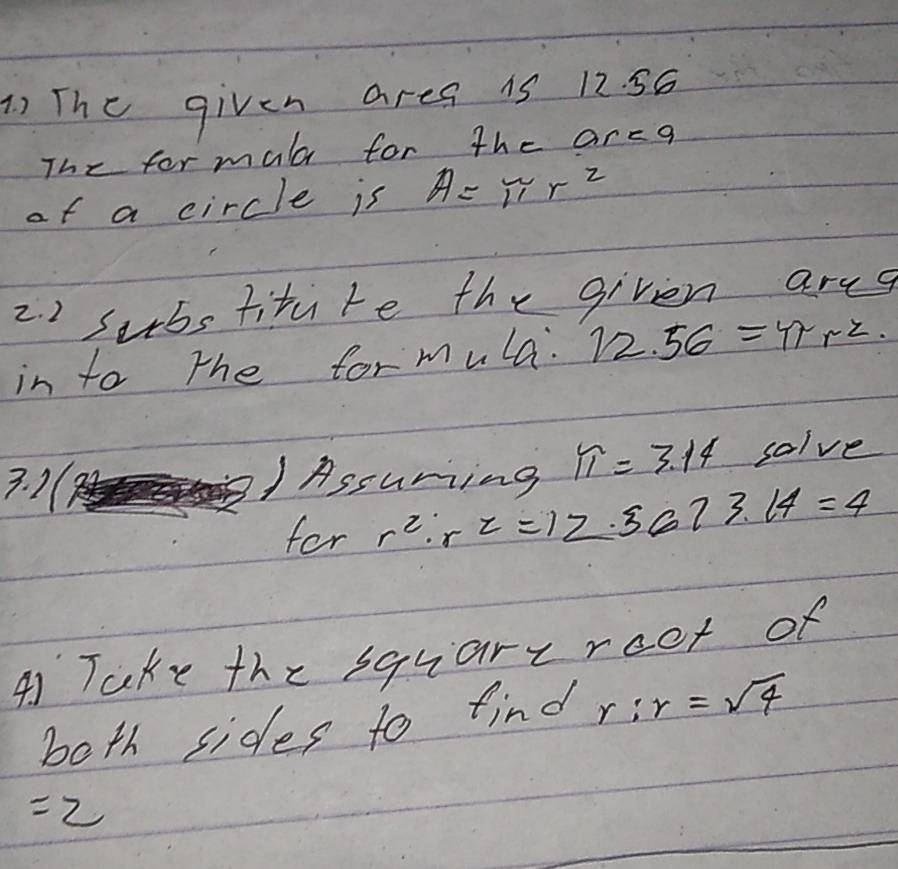 1.) The given area is 12.56
The formula for the area
of a circle is A = π r²
2.) substitute the given area
in to the formula. 12.56 = π r².
3.) ( ) Assuming π = 3.14 solve
for r². r² = 12.5673.14 = 4
4.) Take the square root of
both sides to find r : r = √4
= 2